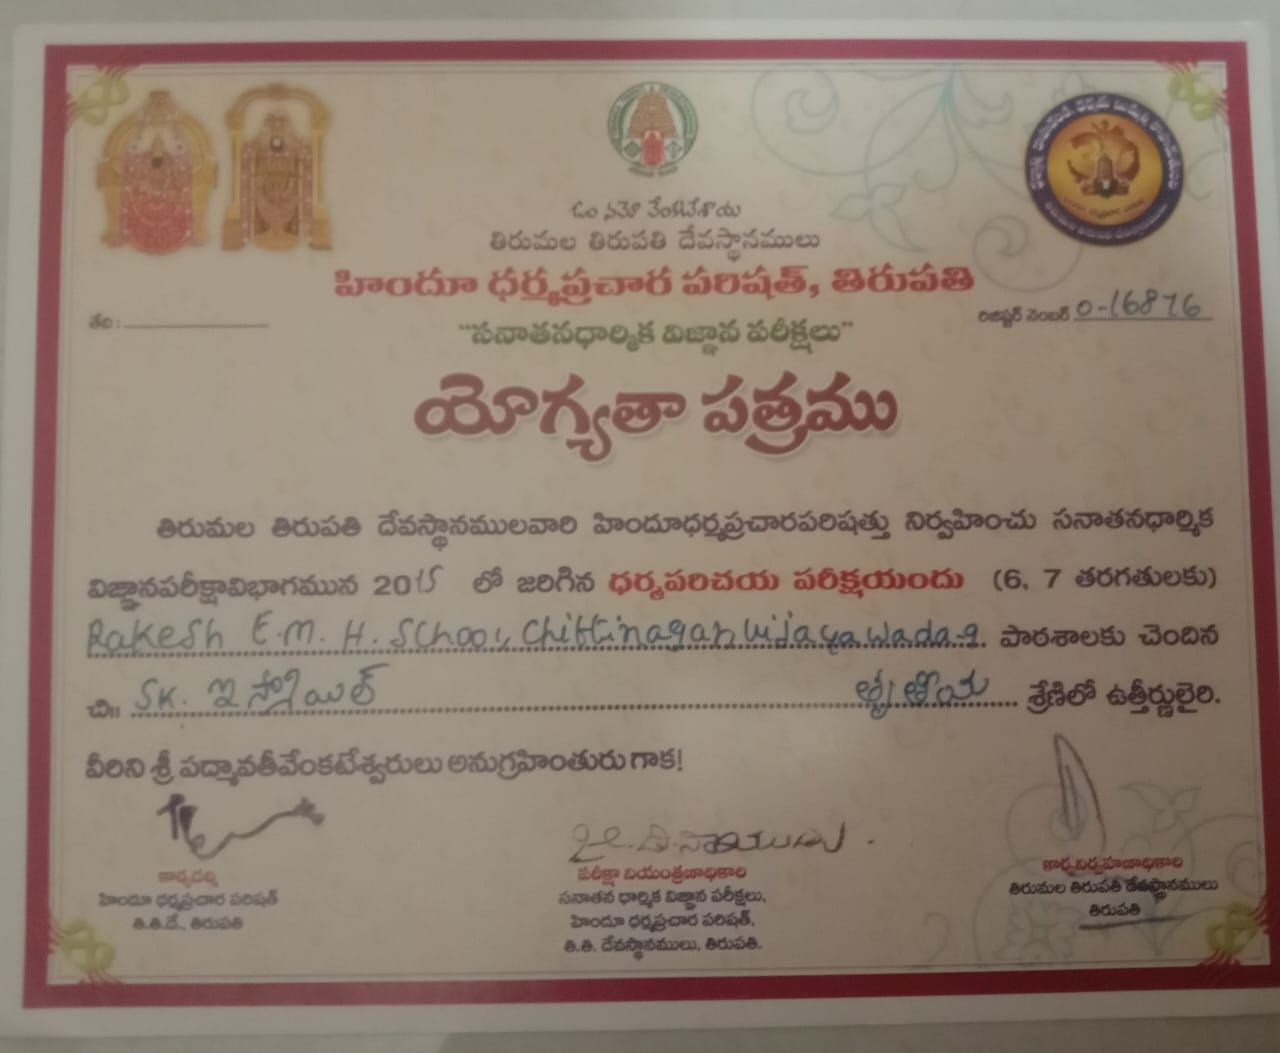 ఓం నమో వేంకటేశాయ
తిరుమల తిరుపతి దేవస్థానములు
హిందూ ధర్మప్రచార పరిషత్, తిరుపతి
తేది :
రిజిష్టర్ నెంబర్ 0-16876
"సనాతనధార్మిక విజ్ఞాన పరీక్షలు"
యోగ్యతా పత్రము
తిరుమల తిరుపతి దేవస్థానములవారి హిందూధర్మప్రచారపరిషత్తు నిర్వహించు సనాతనధార్మిక
విజ్ఞానపరీక్షావిభాగమున 2015 లో జరిగిన ధర్మపరిచయ పరీక్షయందు (6, 7 తరగతులకు)
Rakesh E.M. H. School, Chittinagar, Vijayawada-9. పాఠశాలకు చెందిన
చి॥ SK. ఇస్మాయిల్ తృతీయ శ్రేణిలో ఉత్తీర్ణులైరి.
వీరిని శ్రీ పద్మావతీవేంకటేశ్వరులు అనుగ్రహింతురు గాక!
కార్యదర్శి
హిందూ ధర్మప్రచార పరిషత్
తి.తి.దే., తిరుపతి
పరీక్షా నియంత్రణాధికారి
సనాతన ధార్మిక విజ్ఞాన పరీక్షలు,
హిందూ ధర్మప్రచార పరిషత్,
తి.తి. దేవస్థానములు, తిరుపతి.
కార్యనిర్వహణాధికారి
తిరుమల తిరుపతి దేవస్థానములు
తిరుపతి